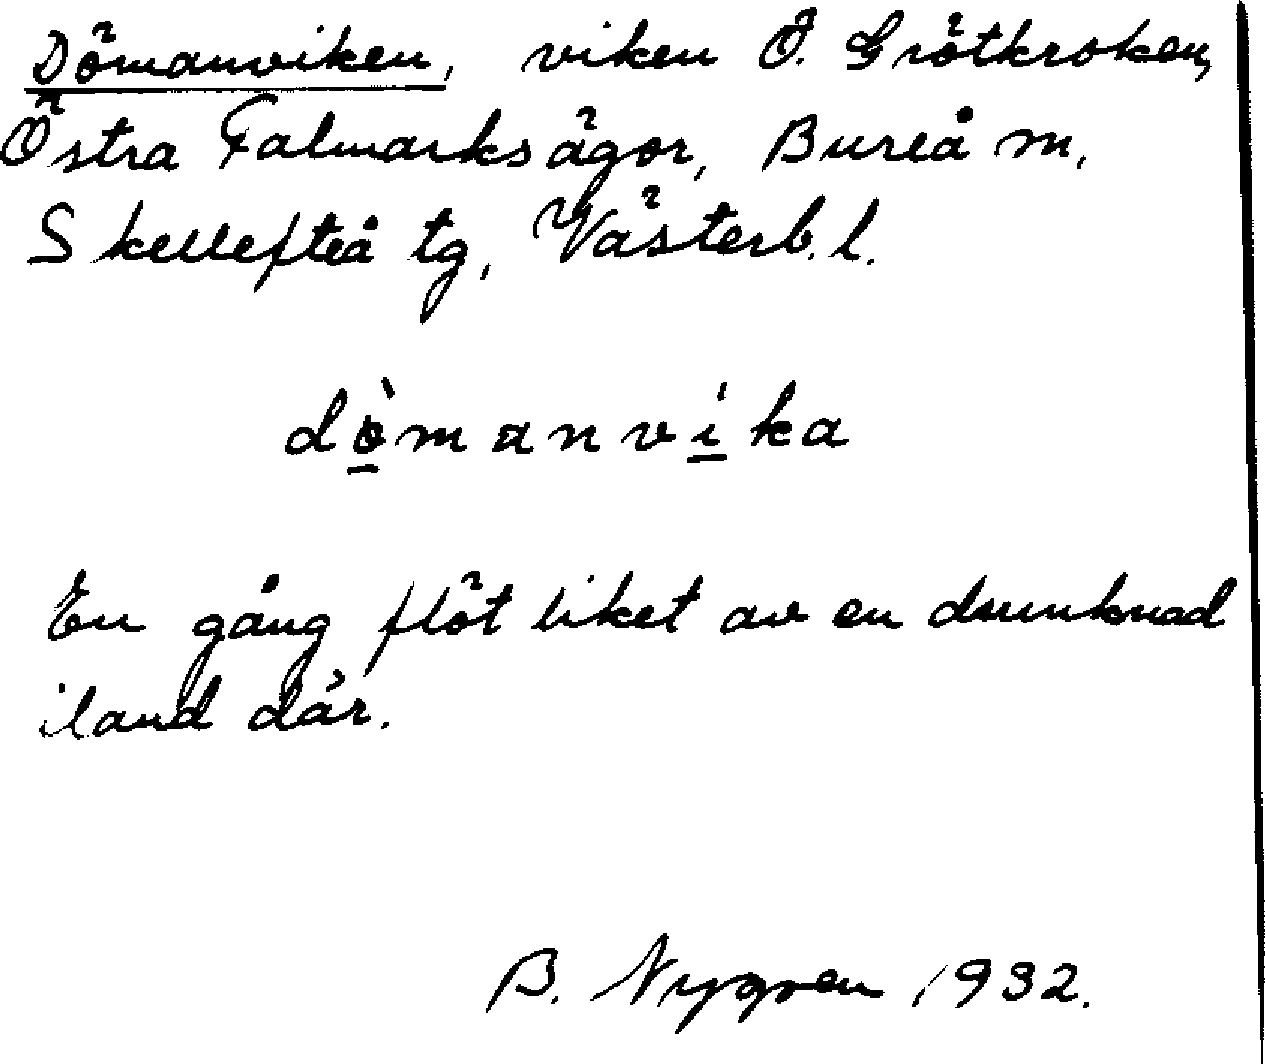 Dömanviken, viken Ö. Grötkroken,
Östra Falmarksägor, Bureå m,
Skellefteå tg, Västerb. l.
dömanvika
En gång flöt liket av en drunknad
iland där.
B. Nygren 1932.